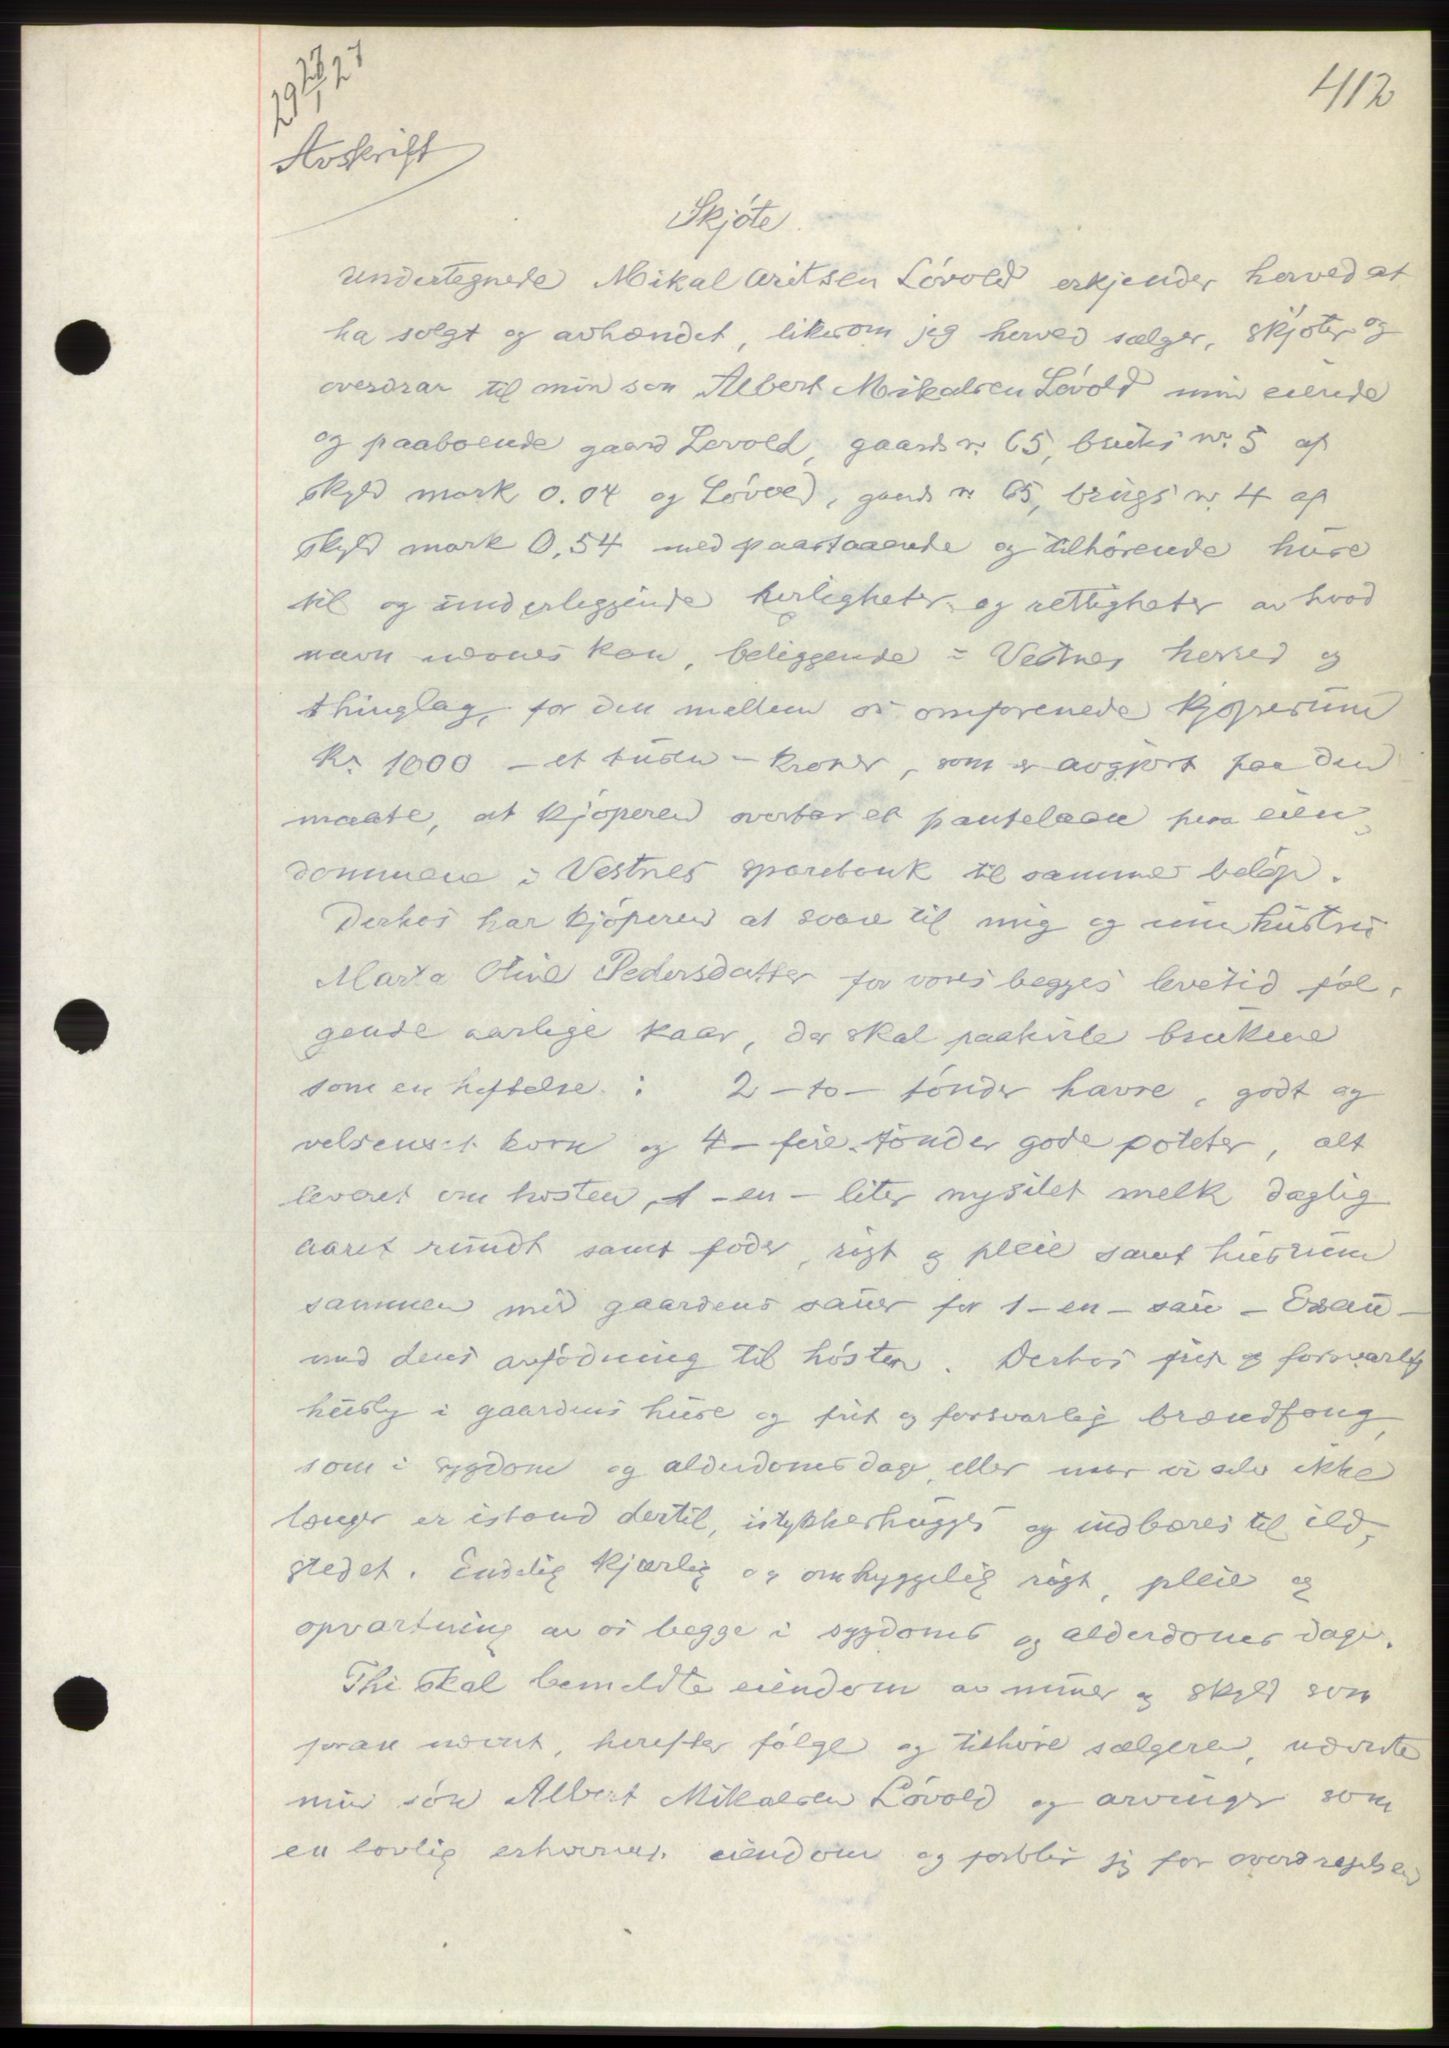 29 27/1 27
412
Avskrift
Skjøte
Undertegnede Mikal Aritsen Løvold erkjender herved at
ha solgt og avhændet, likesom jeg herved sælger, skjøter og
overdrar til min søn Albert Mikalsen Løvold min eiende
og paaboende gaard Lovold, gaards nr. 65, bruks nr. 5 af
skyld mark 0.04 og Løvold, gaards nr 65, brugs nr. 4 af
skyld mark 0,54 med paastaaende og tilhørende huse
til og underleggende herligheter og rettigheter av hvad
navn nævnes kan, beliggende i Vestnes herred og
thinglag, for den mellem os omforenede kjøpesum
kr. 1000 – et tusen – kroner, som er avgjort paa den
maate, at kjøperen overtar et pantelaan paa eien-
dommene i Vestnes sparebank til samme beløp.
Derhos har kjøperen at svare til mig og min hustru
Marta Oline Pedersdatter for vores begges levetid føl-
gende aarlige kaar, der skal paahvile brukene
som en heftelse: 2 – to – tønder havre, godt og
velrenset korn og 4 – fire – tønder gode poteter, alt
leveret om høsten, 1 – en – liter nysilet melk daglig
aaret rundt samt foder, røgt og pleie samt husrum
sammen med gaardens sauer for 1 – en – sau –
med dens avfødning til høsten. Derhos frit og forsvarlig
husly i gaardens huse og frit og forsvarlig brændfang,
som i sygdoms og alderdomsdage, eller naar vi selv ikke
længer er istand dertil, istykkerhugges og indbæres til ild-
stedet. Endelig kjærlig og omhyggelig røgt, pleie og
opvartning av os begge i sygdoms og alderdomes dage.
Thi skal bemeldte eiendom av numer og skyld som
foran nævnt, herefter følge og tilhøre sælgeren, nævnte
min søn Albert Mikalsen Løvold og arvinger som
en lovlig erhvervet eiendom og forblir jeg for overdragelsen